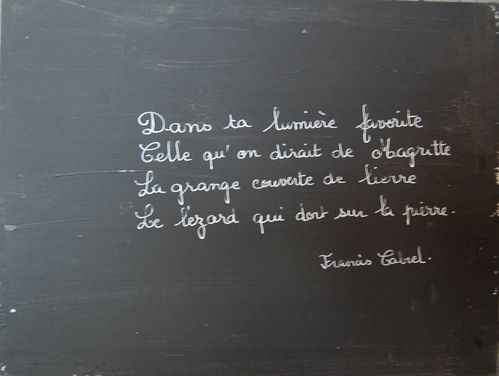 Dans ta lumière favorite
Celle qu'on dirait de Magritte
La grange couverte de lierre
Le lézard qui dort sur la pierre.
Francis Cabrel.